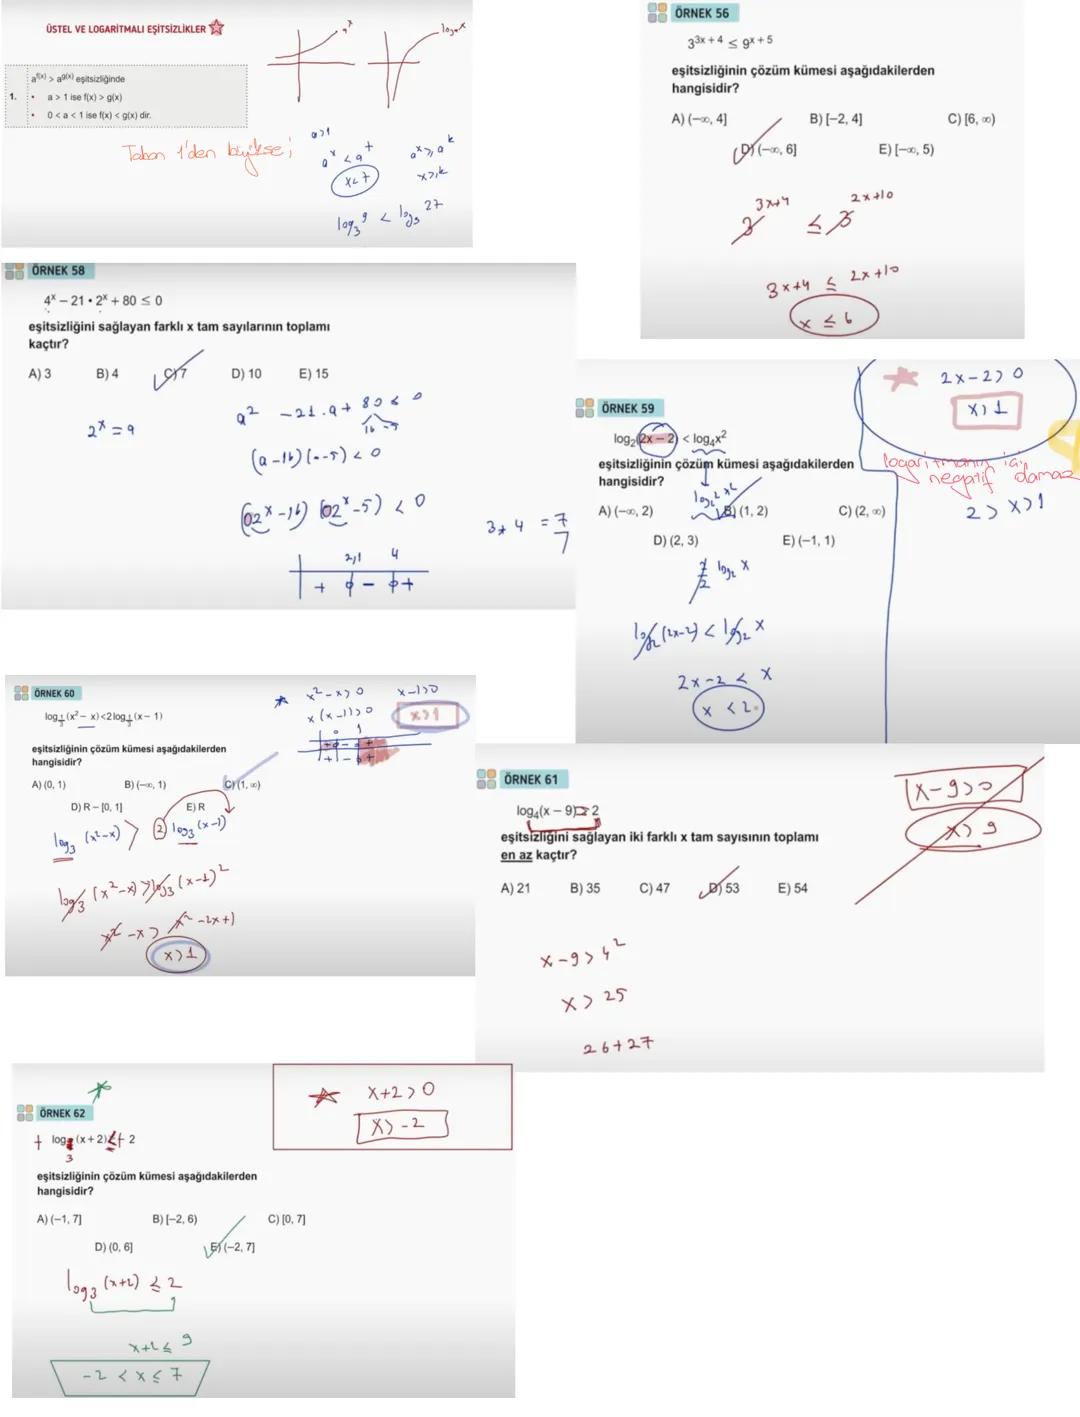 ÜSTEL VE LOGARİTMALI EŞİTSİZLİKLER
a^x
log_a x
1.
a^f(x) > a^g(x) eşitsizliğinde
• a > 1 ise f(x) > g(x)
• 0 < a < 1 ise f(x) < g(x) dir.
Taban 1'den büyükse;
a>1
a^x < a^7
x<7
a^x ≥ a^k
x ≥ k
log_3 9 < log_3 27
ÖRNEK 56
3^3x + 4 ≤ 9^x + 5
eşitsizliğinin çözüm kümesi aşağıdakilerden
hangisidir?
A) (–∞, 4] B) [–2, 4] C) [6, ∞)
D) (–∞, 6] E) [–∞, 5)
3^3x+4 ≤ 3^2x+10
3x+4 ≤ 2x+10
x ≤ 6
ÖRNEK 58
4^x – 21 • 2^x + 80 ≤ 0
eşitsizliğini sağlayan farklı x tam sayılarının toplamı
kaçtır?
A) 3 B) 4 C) 7 D) 10 E) 15
2^x = a
a^2 -21.a + 80 ≤ 0
16 -5
(a-16)(a-5) < 0
(2^x-16) (2^x-5) < 0
3+4 = 7
7
2,1 4
+ ϕ - ϕ +
ÖRNEK 59
log_2(2x – 2) < log_4x^2
eşitsizliğinin çözüm kümesi aşağıdakilerden
hangisidir?
A) (–∞, 2) B) (1, 2) C) (2, ∞)
D) (2, 3) E) (–1, 1)
log_2^2 x^2
2/2 log_2 x
log_2 (2x-2) < log_2 x
2x-2 < x
x < 2
2x-2 > 0
x > 1
logaritmanın içi
negatif olamaz
2 > x > 1
ÖRNEK 60
log_1/3 (x^2 – x) < 2log_1/3 (x – 1)
eşitsizliğinin çözüm kümesi aşağıdakilerden
hangisidir?
A) (0, 1) B) (–∞, 1) C) (1, ∞)
D) R – [0, 1] E) R
log_3 (x^2-x) > 2 log_3 (x-1)
log_3 (x^2-x) > log_3 (x-1)^2
x^2 -x > x^2 -2x+1
x > 1
x^2-x > 0
x (x-1) > 0
0 1
x-1>0
x>1
ÖRNEK 61
log_4(x – 9) > 2
eşitsizliğini sağlayan iki farklı x tam sayısının toplamı
en az kaçtır?
A) 21 B) 35 C) 47 D) 53 E) 54
x-9 > 4^2
x > 25
26+27
x-9>0
x > 9
ÖRNEK 62
+ log_3 (x + 2) ≤ + 2
eşitsizliğinin çözüm kümesi aşağıdakilerden
hangisidir?
A) (–1, 7] B) [–2, 6) C) [0, 7]
D) (0, 6] E) (–2, 7]
log_3 (x+2) ≤ 2
x+2 ≤ 9
-2 < x ≤ 7
x+2 > 0
x > -2